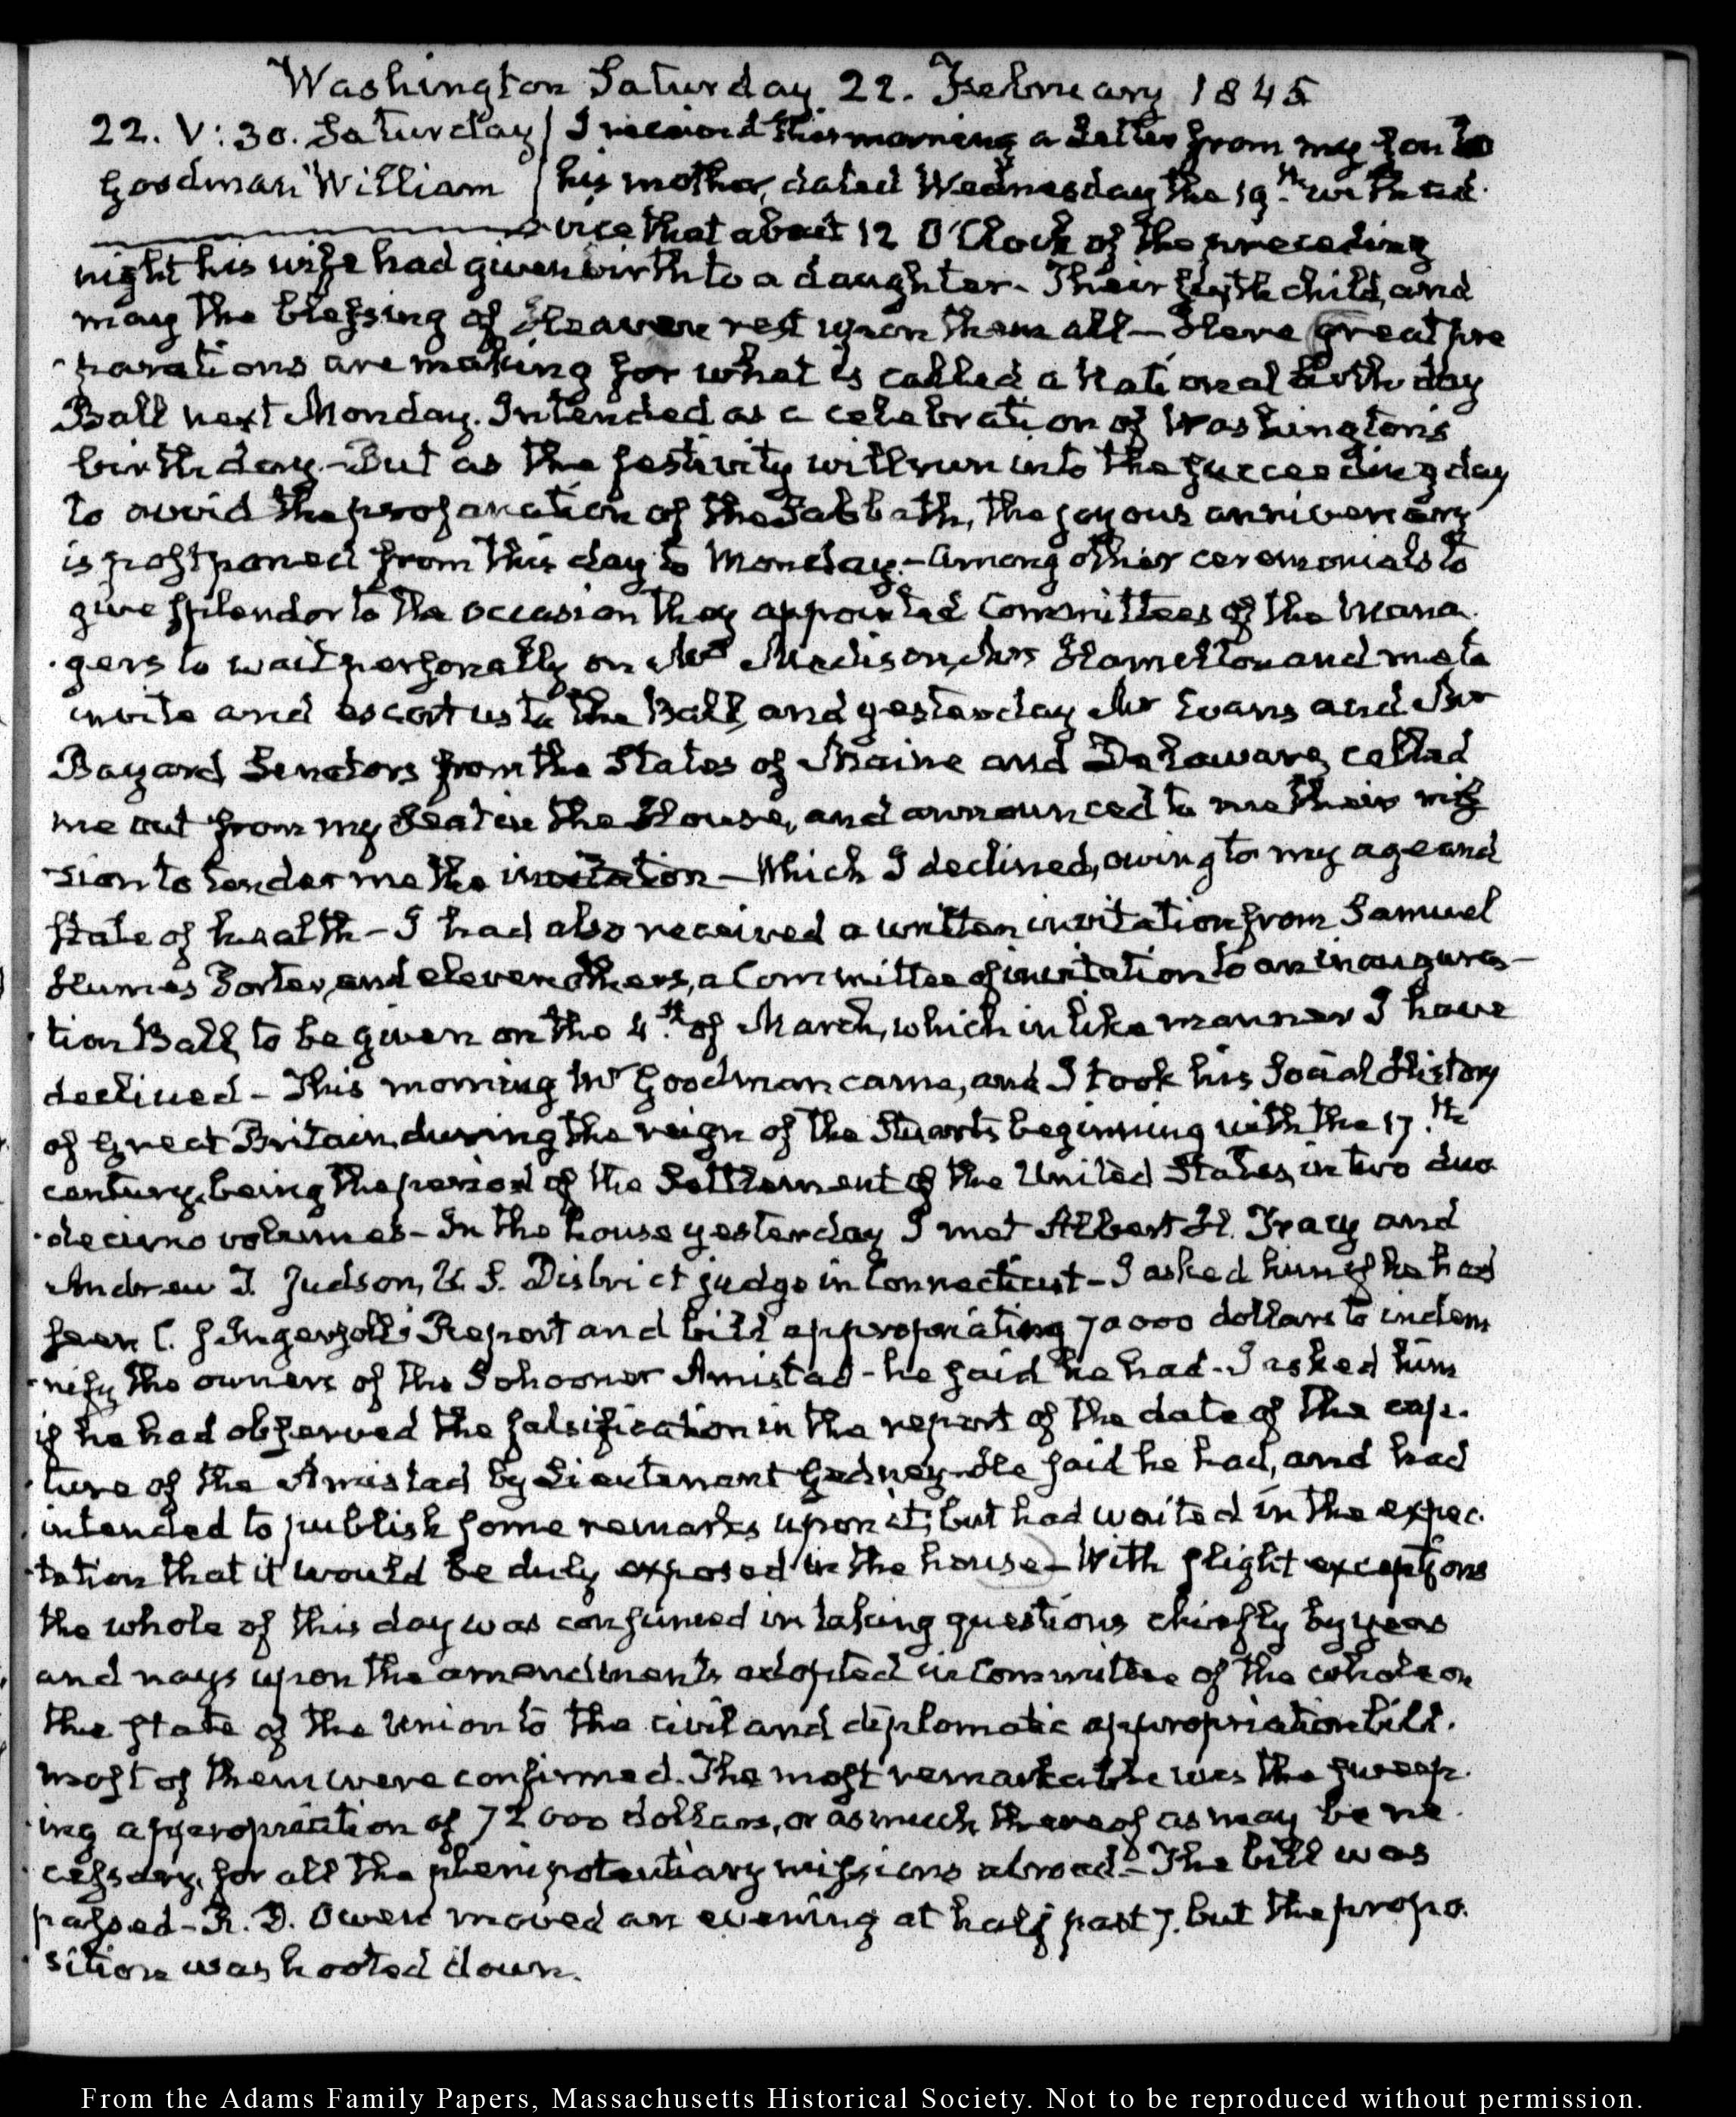 Washington Saturday 22. February 1845
22. V: 30. Saturday
Goodman William
I received this morning a Letter from my Son to
his mother, dated Wednesday the 19th with ad
vice that about 12 O'Clock of the preceding
night his wife had given birth to a daughter. Their fifth child, and
may the blessing of Heaven rest upon them all — Here great pre
parations are making for what is called a National birth day
Ball next Monday. Intended as a celebration of Washington's
birth day — But as the festivity will run into the succeeding day
to avoid the profanation of the Sabbath, the joyous anniversary
is postponed from this day to Monday. — Among other ceremonials to
give splendor to the occasion they appointed Committees of the Mana
gers to wait personally on Mrs Madison, Mrs Hamilton and me to
invite and escort us to the Ball, and yesterday Mr Evans and Mr
Bayard, Senators from the States of Maine and Delaware, called
me out from my Seat in the House, and announced to me their mis
sion to tender me the invitation — Which I declined, owing to my age and
state of health — I had also received a written invitation from Samuel
Humes Porter, and eleven others, a Committee of invitation to an inaugura
tion Ball, to be given on the 4th of March, which in like manner I have
declined — This morning Mr Goodman came, and I took his Social History
of Great Britain during the reign of the Stuarts beginning with the 17th
century, being the period of the Settlement of the United States, in two duo
decimo volumes — In the house yesterday I met Albert H. Tracy and
Andrew T. Judson, U. S. District judge in Connecticut — I asked him if he had
seen C. J. Ingersoll's Report and bill appropriating 70000 dollars to indem
nify the owners of the Schooner Amistad — he said he had — I asked him
if he had observed the falsification in the report of the date of the cap
ture of the Amistad by Lieutenant Gedney — He said he had, and had
intended to publish some remarks upon it; but had waited in the expec
tation that it would be duly exposed in the house — With slight exceptions
the whole of this day was consumed in taking questions chiefly by yeas
and nays upon the amendments adopted in Committee of the whole on
the state of the Union to the civil and diplomatic appropriation bill.
most of them were confirmed. The most remarkable was the sweep
ing appropriation of 72000 dollars, or as much thereof as may be ne
cessary, for all the plenipotentiary missions abroad — The bill was
passed — R. D. Owen moved an evening at half past 7. but the propo
sition was hooted down.
From the Adams Family Papers, Massachusetts Historical Society. Not to be reproduced without permission.